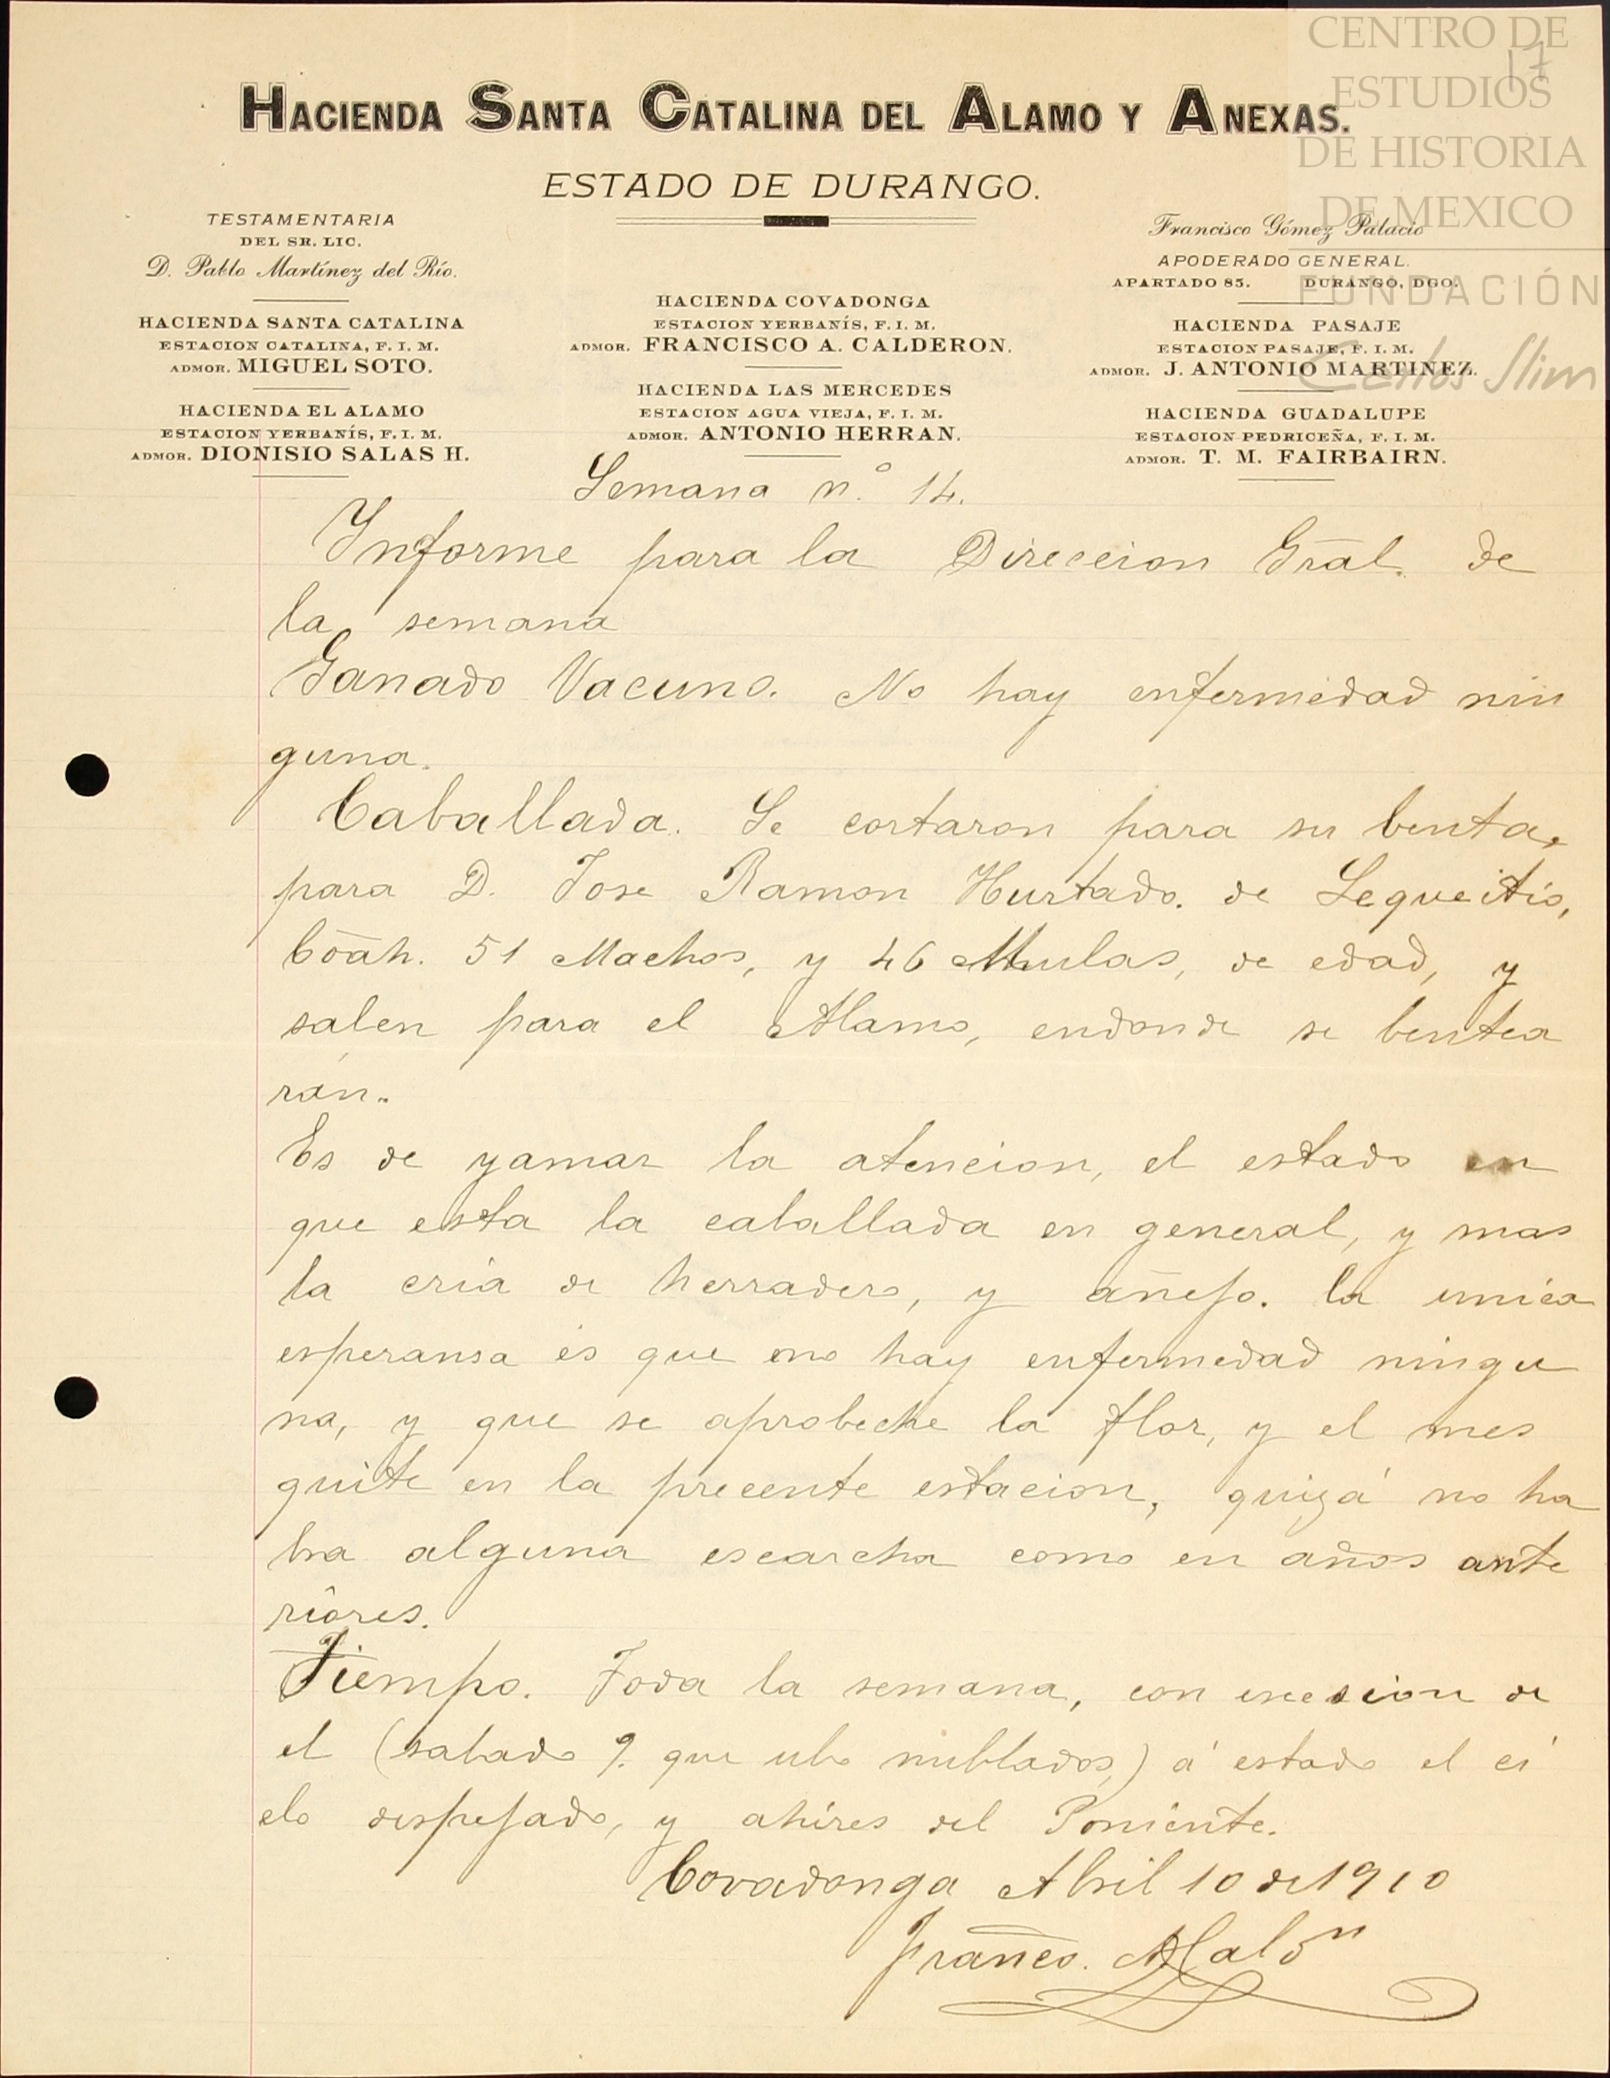 CENTRO DE
ESTUDIOS
DE HISTORIA
DE MEXICO
FUNDACIÓN
Carlos Slim
17
HACIENDA SANTA CATALINA DEL ALAMO Y ANEXAS.
ESTADO DE DURANGO.
TESTAMENTARIA
DEL SR. LIC.
D. Pablo Martínez del Río.
HACIENDA SANTA CATALINA
ESTACION CATALINA, F. I. M.
ADMOR. MIGUEL SOTO.
HACIENDA EL ALAMO
ESTACION YERBANÍS, F. I. M.
ADMOR. DIONISIO SALAS H.
HACIENDA COVADONGA
ESTACION YERBANÍS, F. I. M.
ADMOR. FRANCISCO A. CALDERON.
HACIENDA LAS MERCEDES
ESTACION AGUA VIEJA, F. I. M.
ADMOR. ANTONIO HERRAN.
Francisco Gómez Palacio
APODERADO GENERAL.
APARTADO 85. DURANGO, DGO.
HACIENDA PASAJE
ESTACION PASAJE, F. I. M.
ADMOR. J. ANTONIO MARTINEZ.
HACIENDA GUADALUPE
ESTACION PEDRICEÑA, F. I. M.
ADMOR. T. M. FAIRBAIRN.
Semana n.º 14.
Informe para la Direccion Gral. de
la semana
Ganado Vacuno. No hay enfermedad nin
guna.
Caballada. Se cortaron para su benta,
para D. Jose Ramon Hurtado. de Lequeitio,
Coah. 51 Machos, y 46 Mulas, de edad, y
salen para el Alamo, endonde se bentea
ran.
Es de yamar la atencion, el estado en
que esta la caballada en general, y mas
la cria de herradero, y añejo. la unica
esperansa es que no hay enfermedad ningu
na, y que se aprobeche la flor, y el mes
quite en la precente estacion, quizá no ha
bra alguna escarcha como en años ante
riores.
Tiempo. Toda la semana, con escesion de
el (sabado 9. que ubo niublados,) á estado el ci
elo despejado, y ahires del Poniente.
Covadonga Abril 10 de 1910
Franco. A Calon